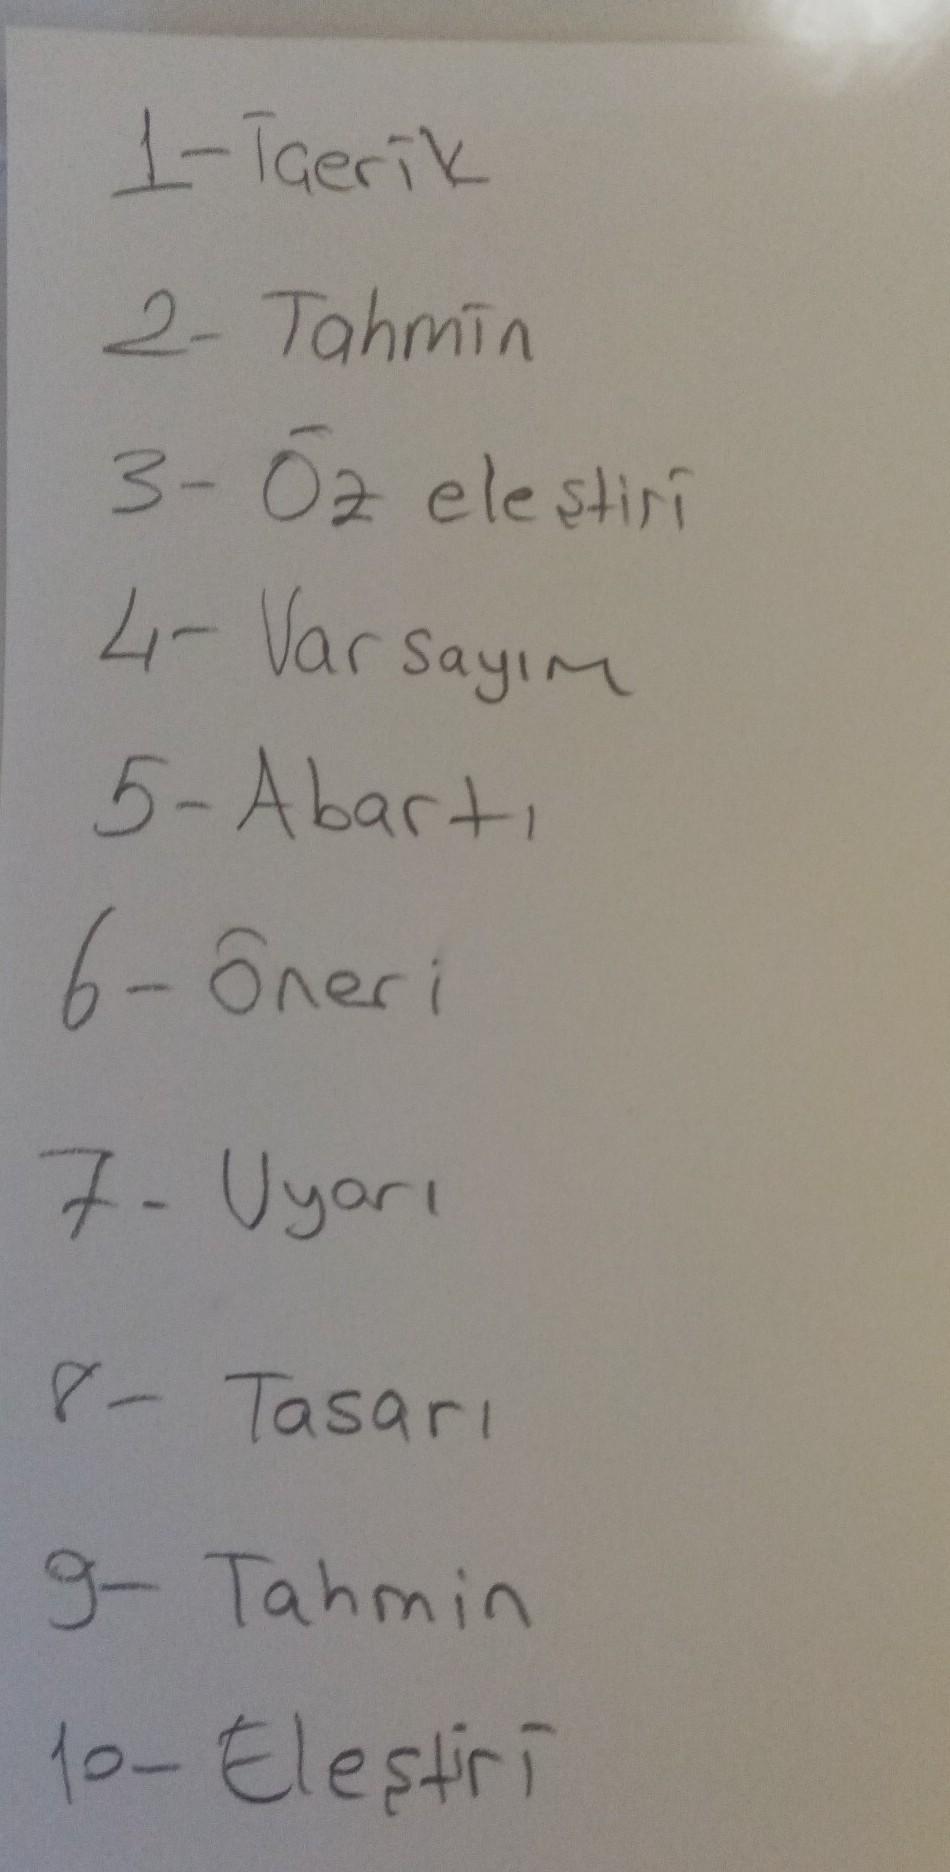 1- İçerik
2- Tahmin
3- Öz eleştiri
4- Varsayım
5- Abartı
6- Öneri
7- Uyarı
8- Tasarı
9- Tahmin
10- Eleştiri